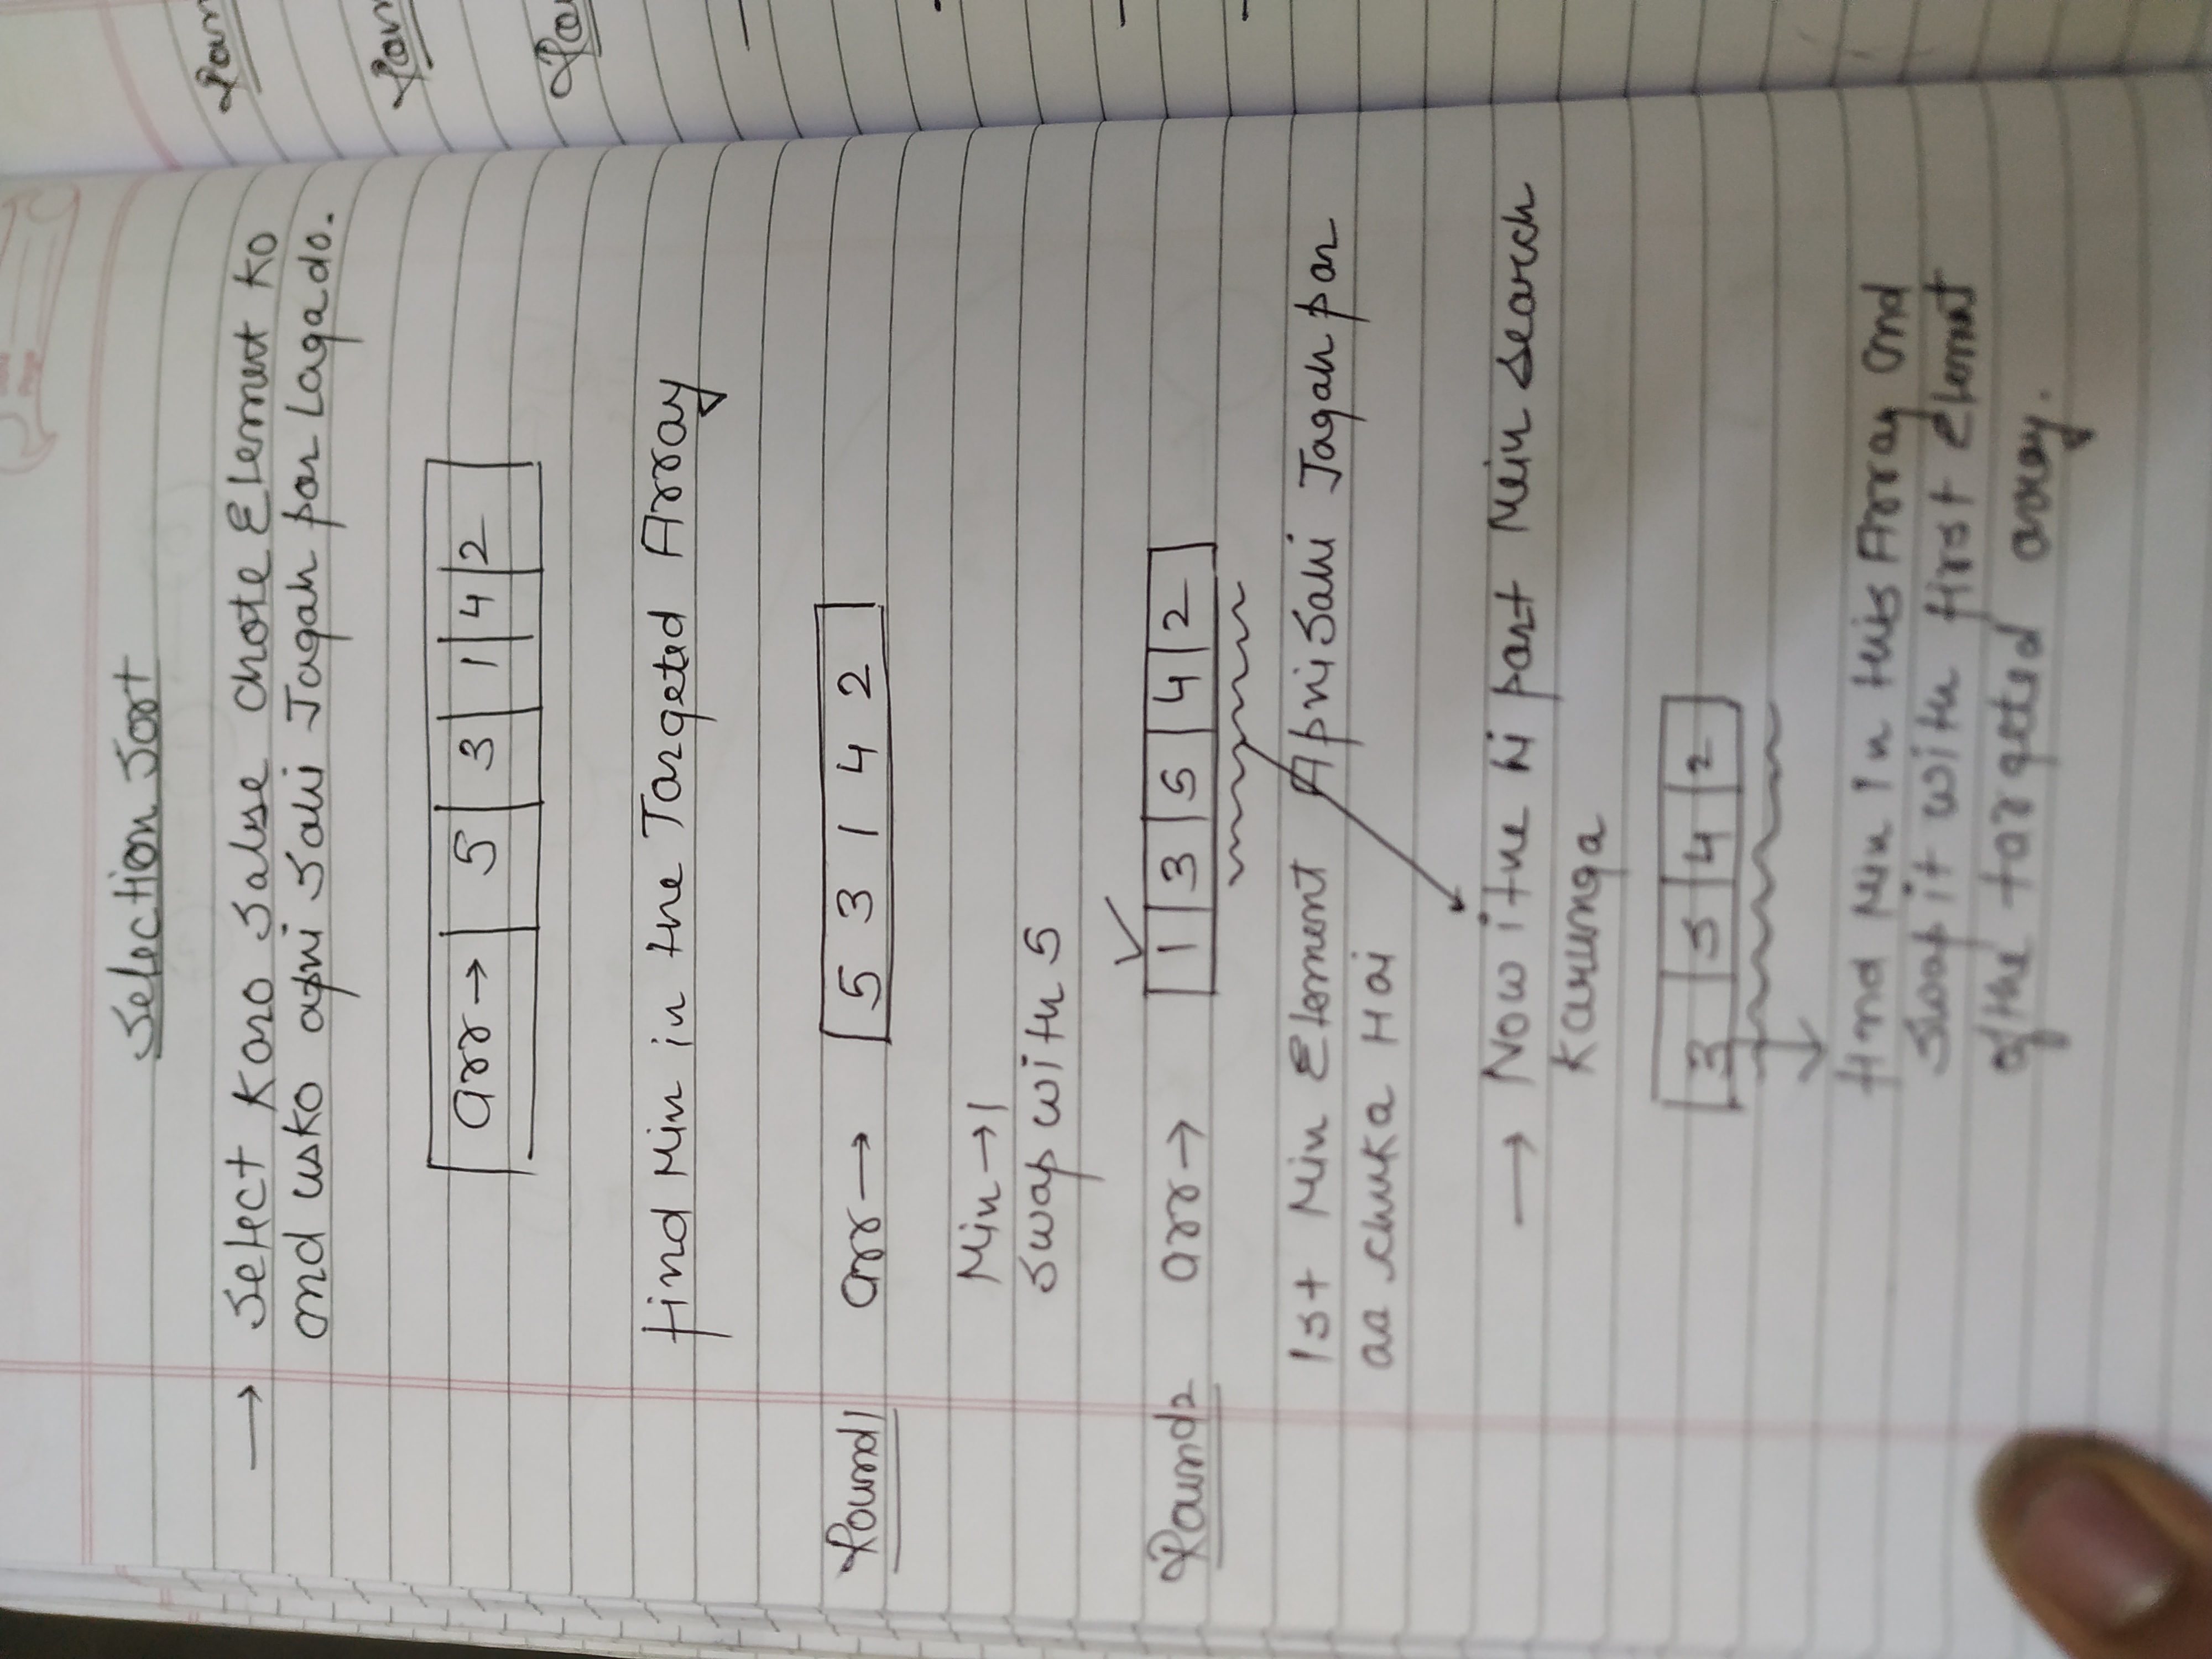 Selection Sort
→ Select Karo Sabse chote Element ko
and usko apni Sahi Jagah par Lagado.
arr → 5 3 1 4 2
find Min in the Targeted Array
Round1 arr → 5 3 1 4 2
Min → 1
Swap with 5
✓
Round2 arr → 1 3 5 4 2
1st Min Element Apni Sahi Jagah par
aa chuka Hai
→ Now itne hi part Mein search
Karunga
3 5 4 2
find Min In this Array and
Swap it with first Element
of the targeted array.